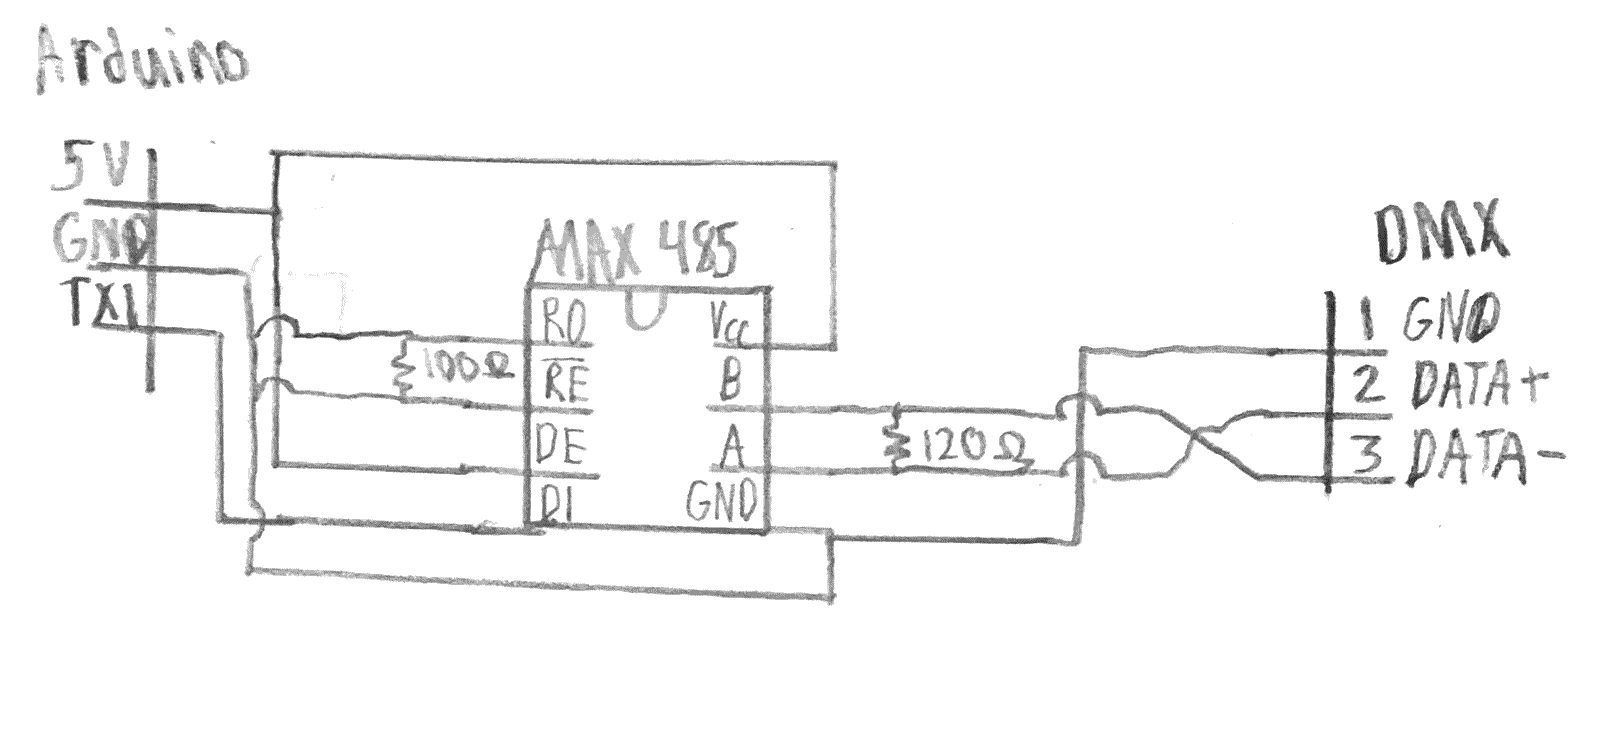 Arduino
5V
GND
TX1
MAX 485
RO
RE
DE
DI
Vcc
B
A
GND
100Ω
120Ω
DMX
1 GND
2 DATA+
3 DATA-